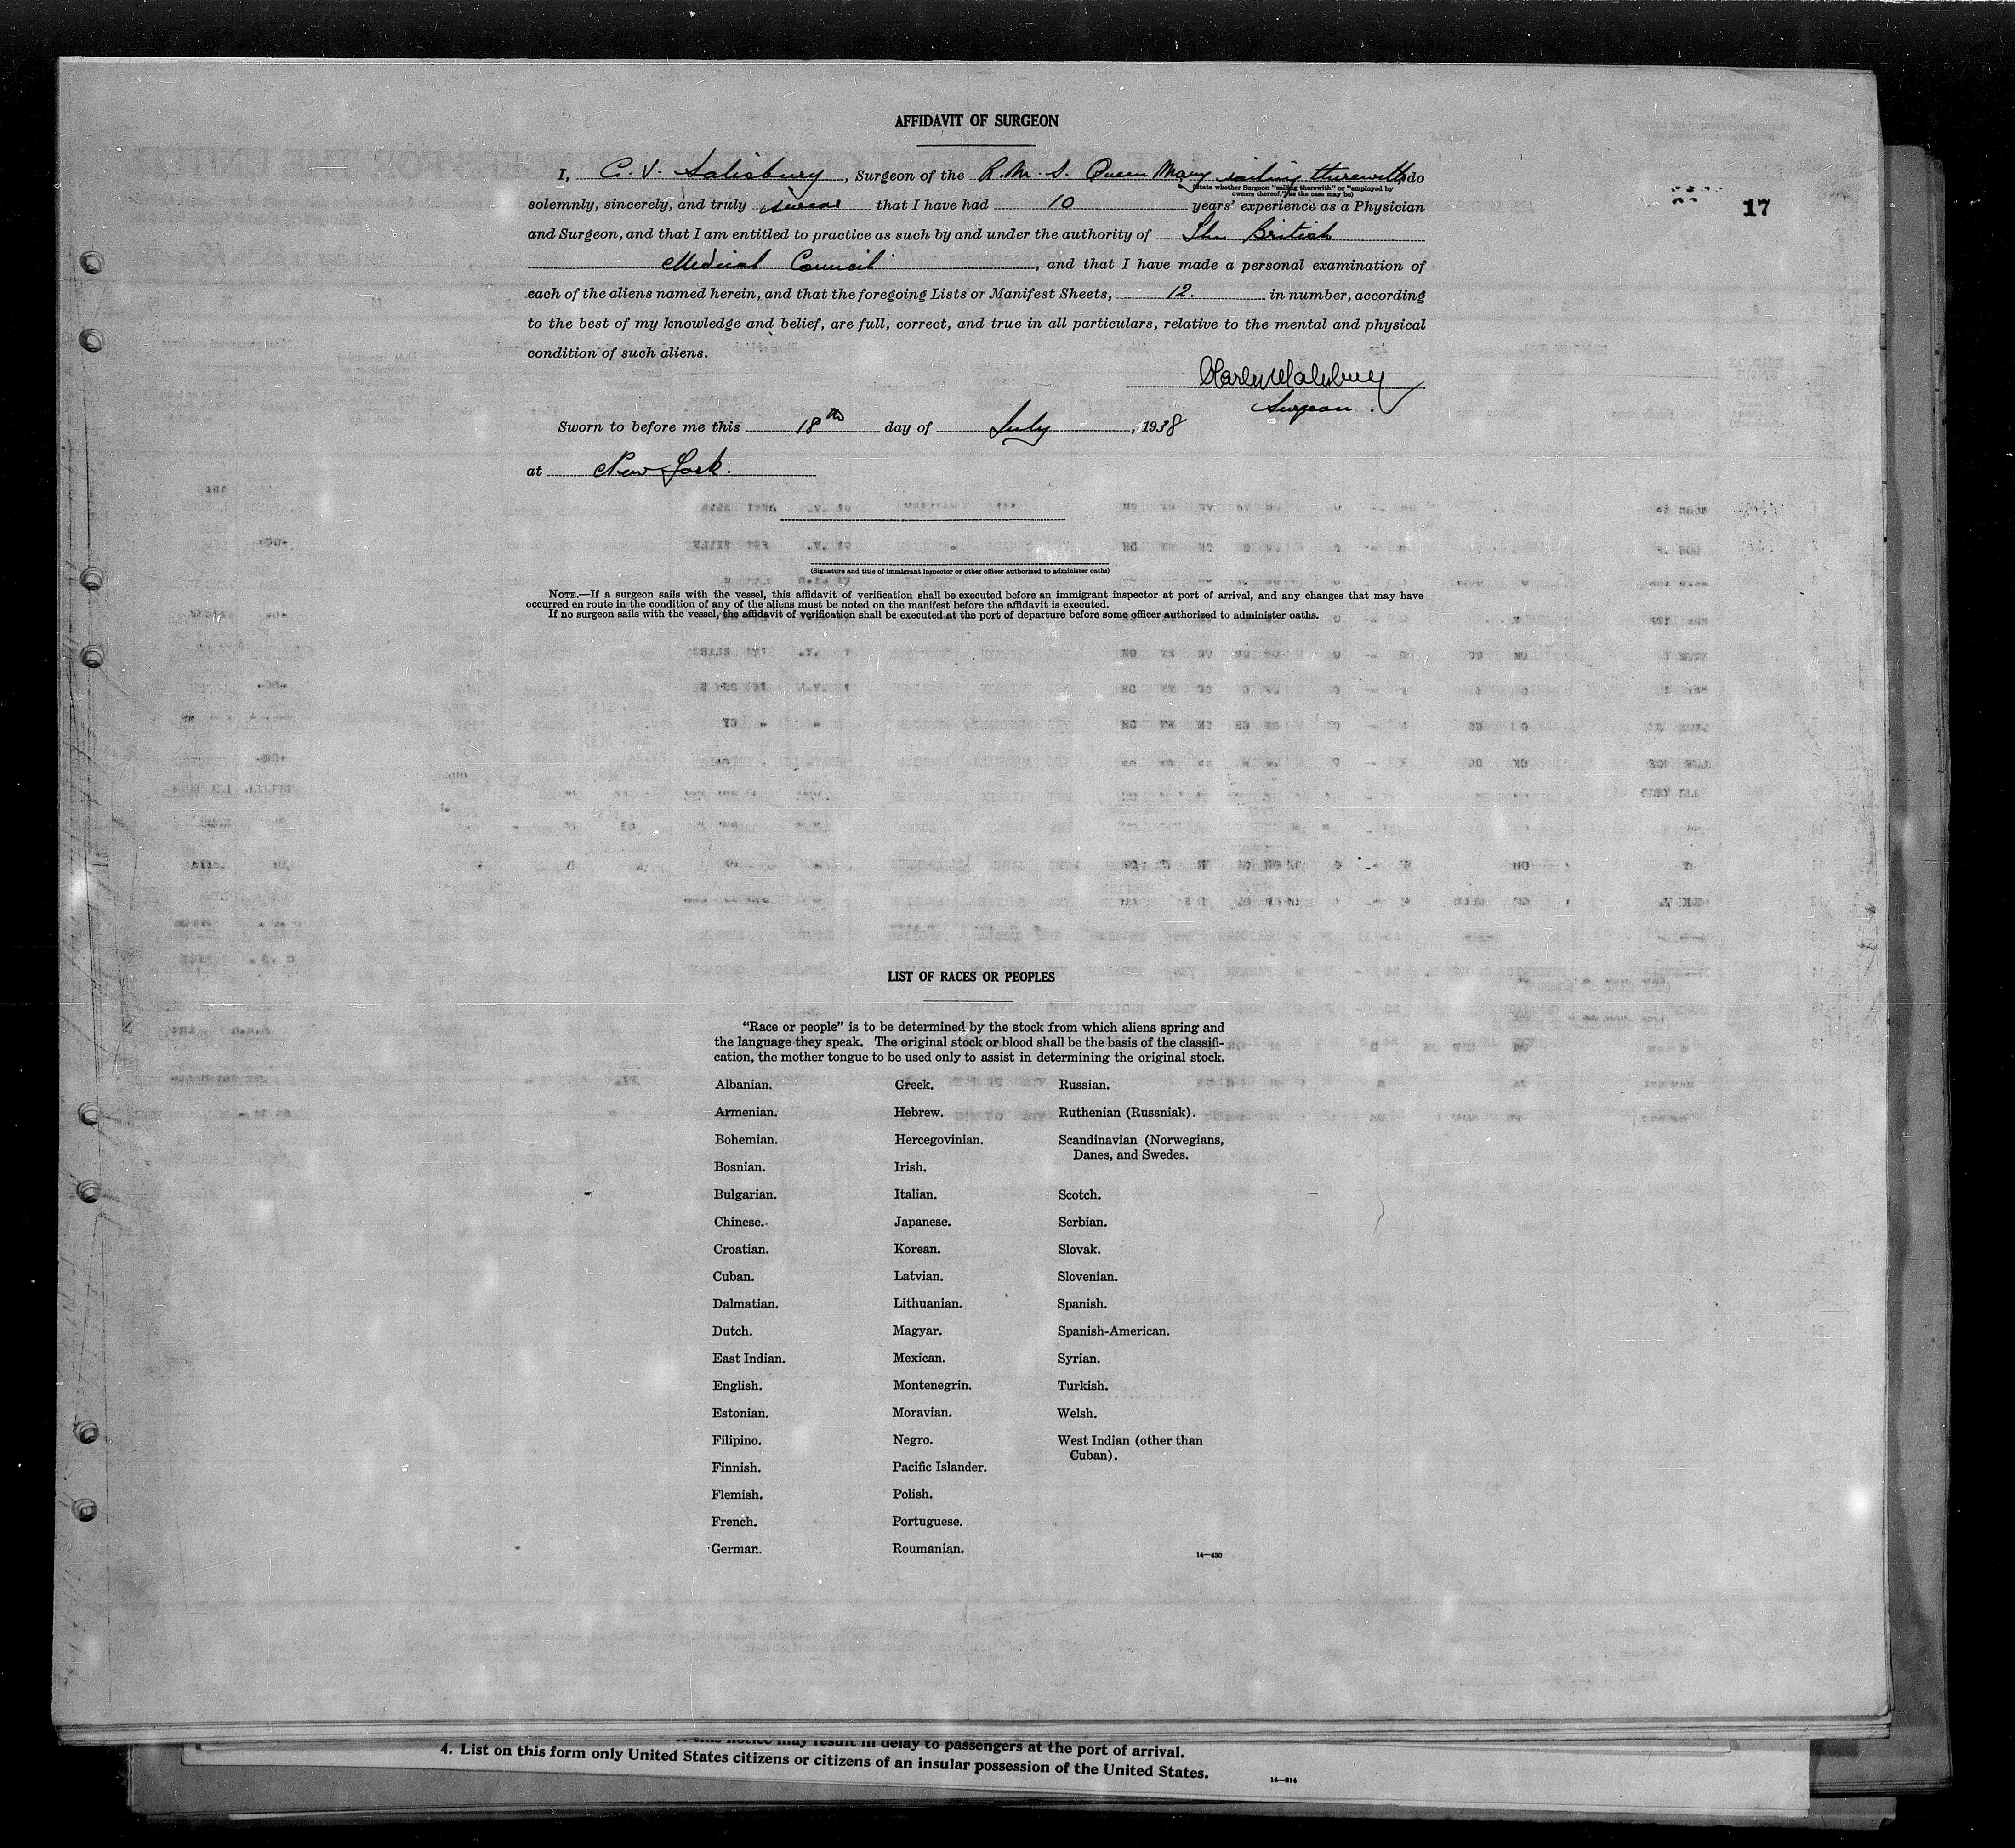 AFFIDAVIT OF SURGEON
I, C. V. Salisbury, Surgeon of the R. M. S. Queen Mary sailing therewith do
(State whether Surgeon "sailing therewith" or "employed by
owners thereof," as the case may be)
solemnly, sincerely, and truly swear that I have had 10 years' experience as a Physician
17
and Surgeon, and that I am entitled to practice as such by and under the authority of The British
Medical Council, and that I have made a personal examination of
each of the aliens named herein, and that the foregoing Lists or Manifest Sheets, 12. in number, according
to the best of my knowledge and belief, are full, correct, and true in all particulars, relative to the mental and physical
condition of such aliens.
Surgeon.
Sworn to before me this 18th day of July, 1938
at New York.
(Signature and title of immigrant inspector or other officer authorized to administer oaths)
NOTE.—If a surgeon sails with the vessel, this affidavit of verification shall be executed before an immigrant inspector at port of arrival, and any changes that may have
occurred en route in the condition of any of the aliens must be noted on the manifest before the affidavit is executed.
If no surgeon sails with the vessel, the affidavit of verification shall be executed at the port of departure before some officer authorized to administer oaths.
LIST OF RACES OR PEOPLES
"Race or people" is to be determined by the stock from which aliens spring and
the language they speak. The original stock or blood shall be the basis of the classifi-
cation, the mother tongue to be used only to assist in determining the original stock.
Albanian.
Armenian.
Bohemian.
Bosnian.
Bulgarian.
Chinese.
Croatian.
Cuban.
Dalmatian.
Dutch.
East Indian.
English.
Estonian.
Filipino.
Finnish.
Flemish.
French.
German.
Greek.
Hebrew.
Hercegovinian.
Irish.
Italian.
Japanese.
Korean.
Latvian.
Lithuanian.
Magyar.
Mexican.
Montenegrin.
Moravian.
Negro.
Pacific Islander.
Polish.
Portuguese.
Roumanian.
Russian.
Ruthenian (Russniak).
Scandinavian (Norwegians,
Danes, and Swedes.
Scotch.
Serbian.
Slovak.
Slovenian.
Spanish.
Spanish-American.
Syrian.
Turkish.
Welsh.
West Indian (other than
Cuban).
14—430
this notice may result in delay to passengers at the port of arrival.
4. List on this form only United States citizens or citizens of an insular possession of the United States.
14—614